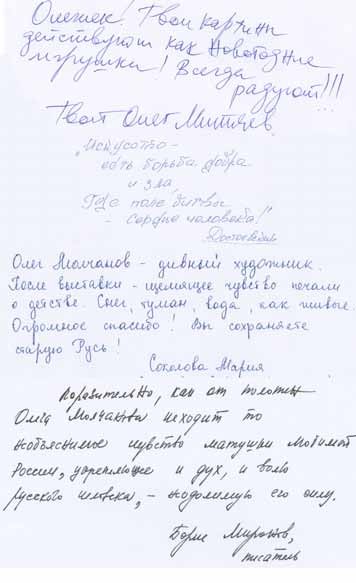 Олежек! Твои картины
действуют как Новогодние
игрушки! Всегда
радуют!!!
Твой Олег Митяев
„Искусство –
есть борьба добра
и зла,
Где поле битвы
– сердце человека!"
Достоевский
Олег Молчанов – дивный художник.
После выставки – щемящее чувство печали
о детстве. Снег, туман, вода, как живые.
Огромное спасибо! Вы сохраняете
старую Русь!
Соколова Мария
Поразительно, как от полотен
Олега Молчанова исходит то
необъяснимое чувство матушки любимой
России, укрепляющее и дух, и волю
русского человека, – неодолимую его силу.
Борис Миронов,
писатель